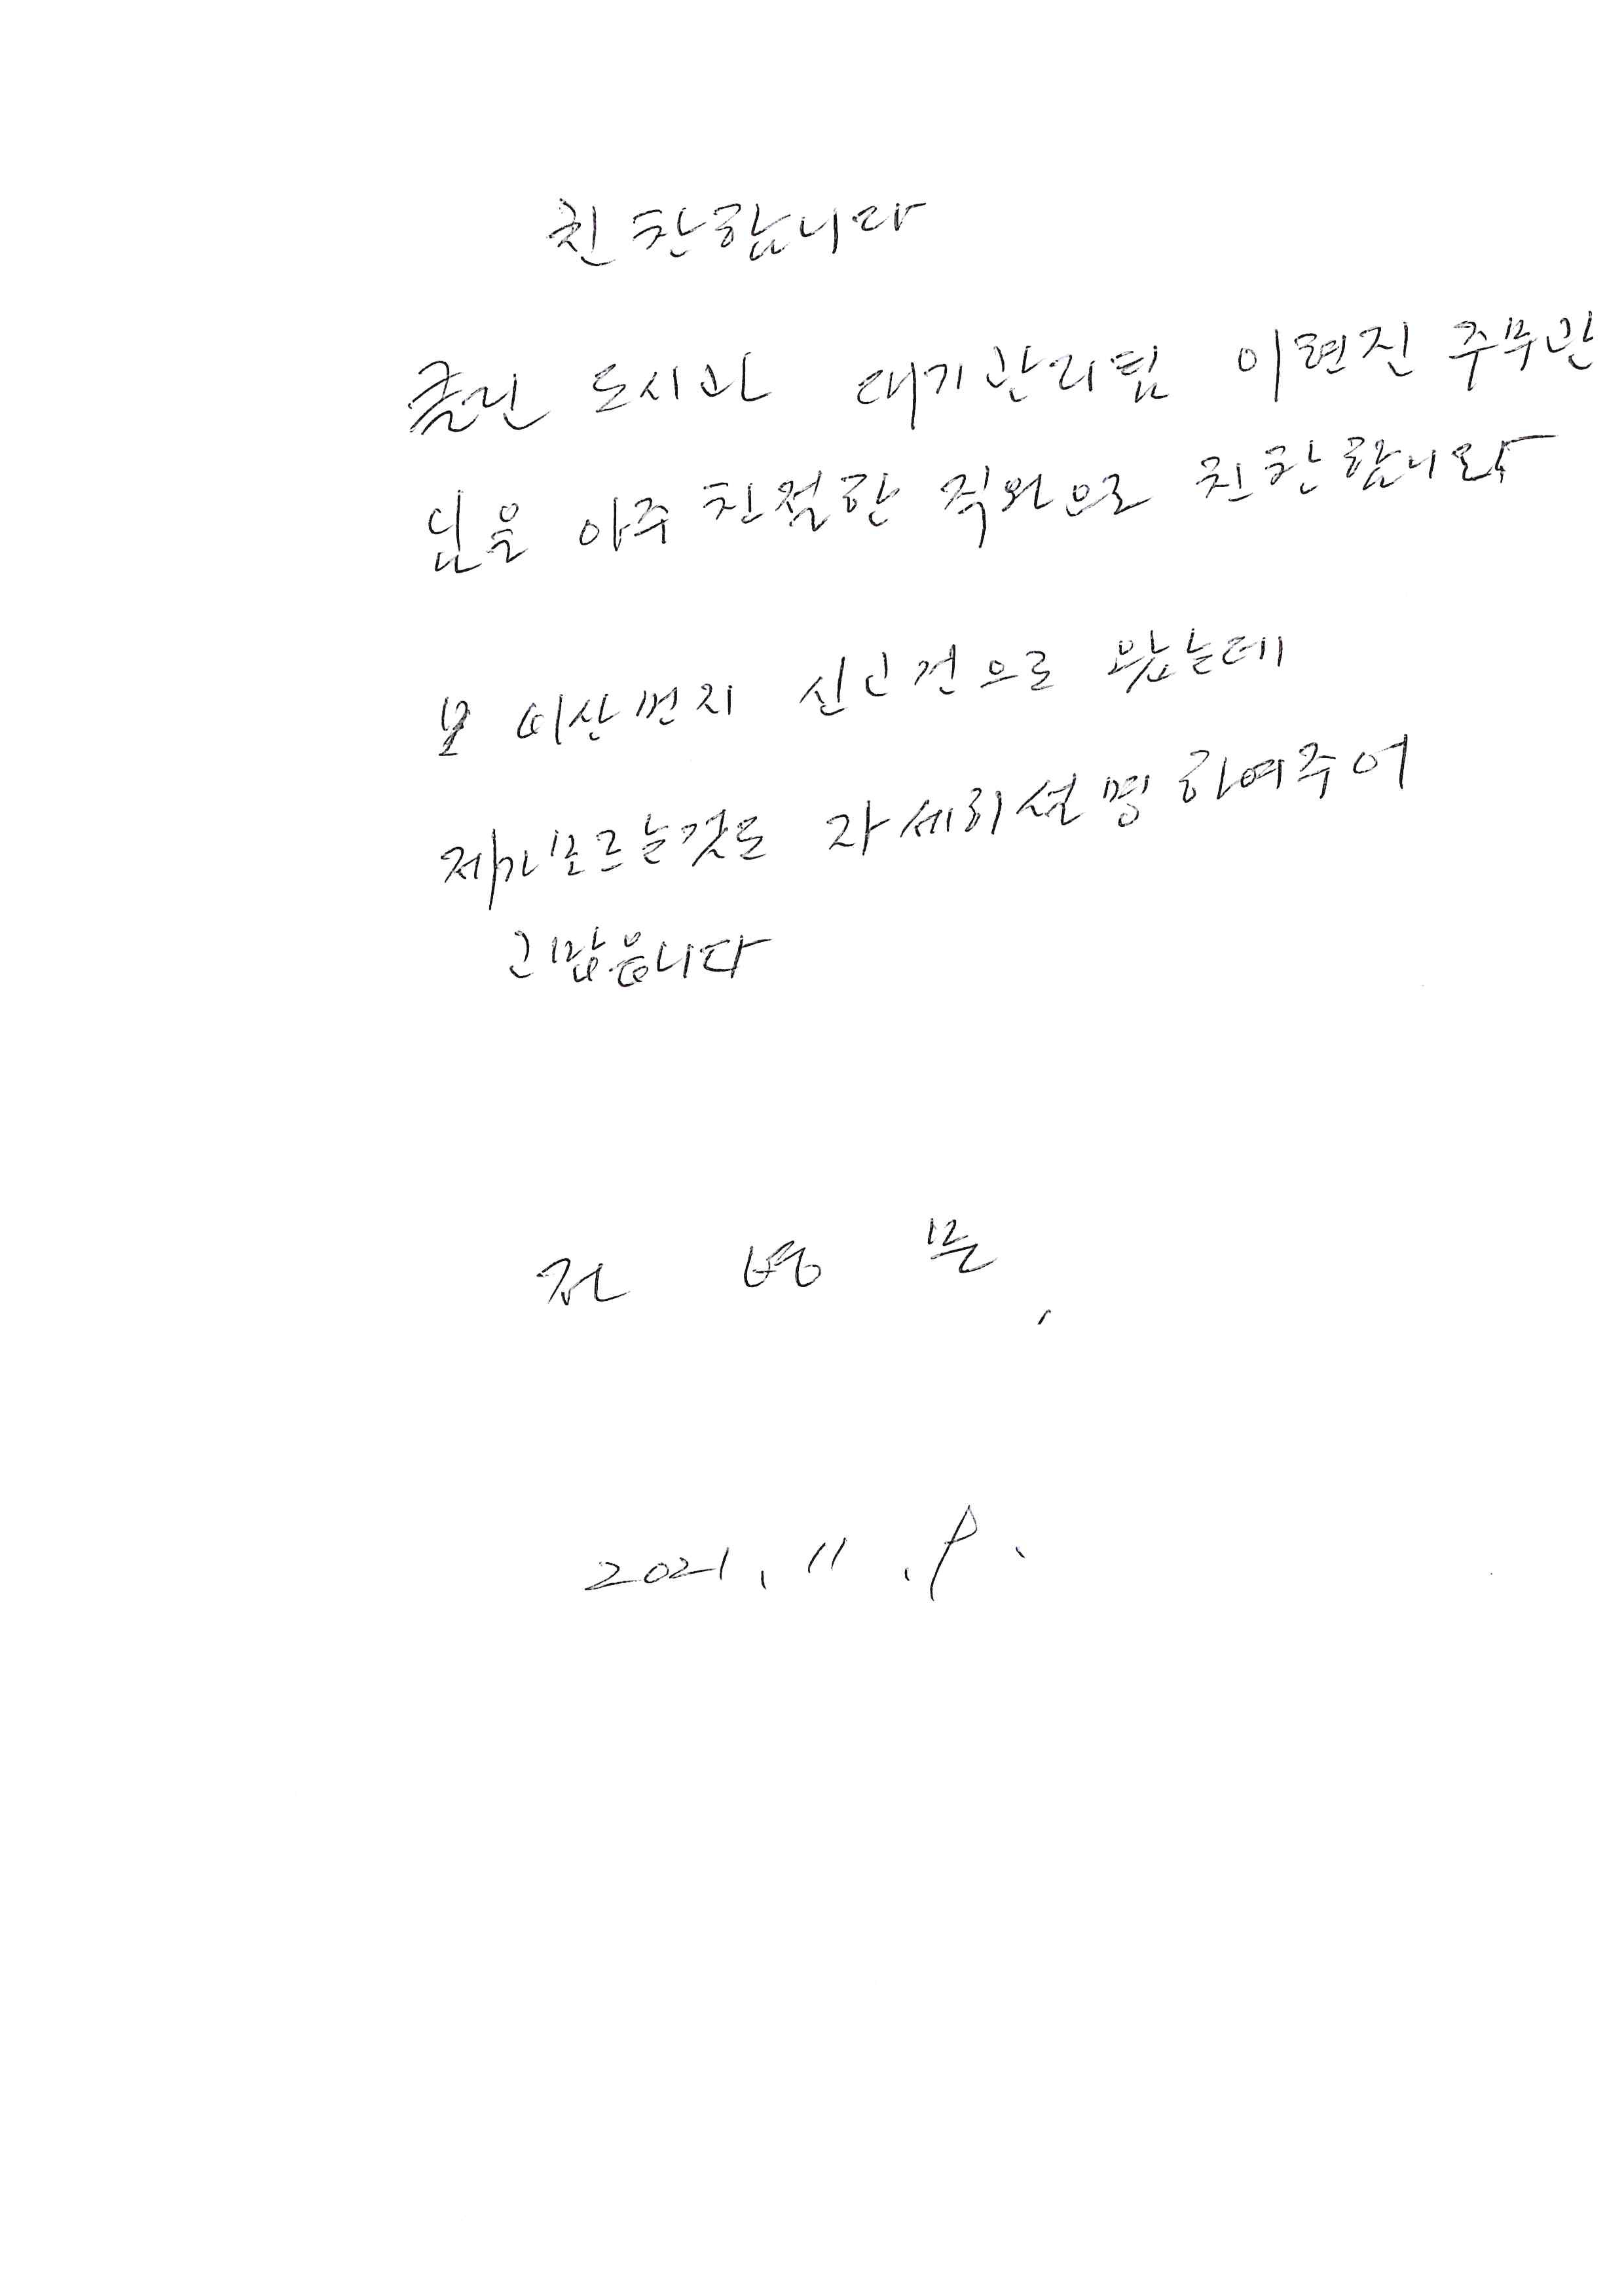 친찬합니다
클린 도시과 대기관리팀 이현진 주무관
님을 아주 친절한 직원으로 친찬합니다
비산먼지 신고건으로 왔는데
제가모르는것도 자세히설명하여주어
고맙읍니다
전 병 문
2021. 11. 9.